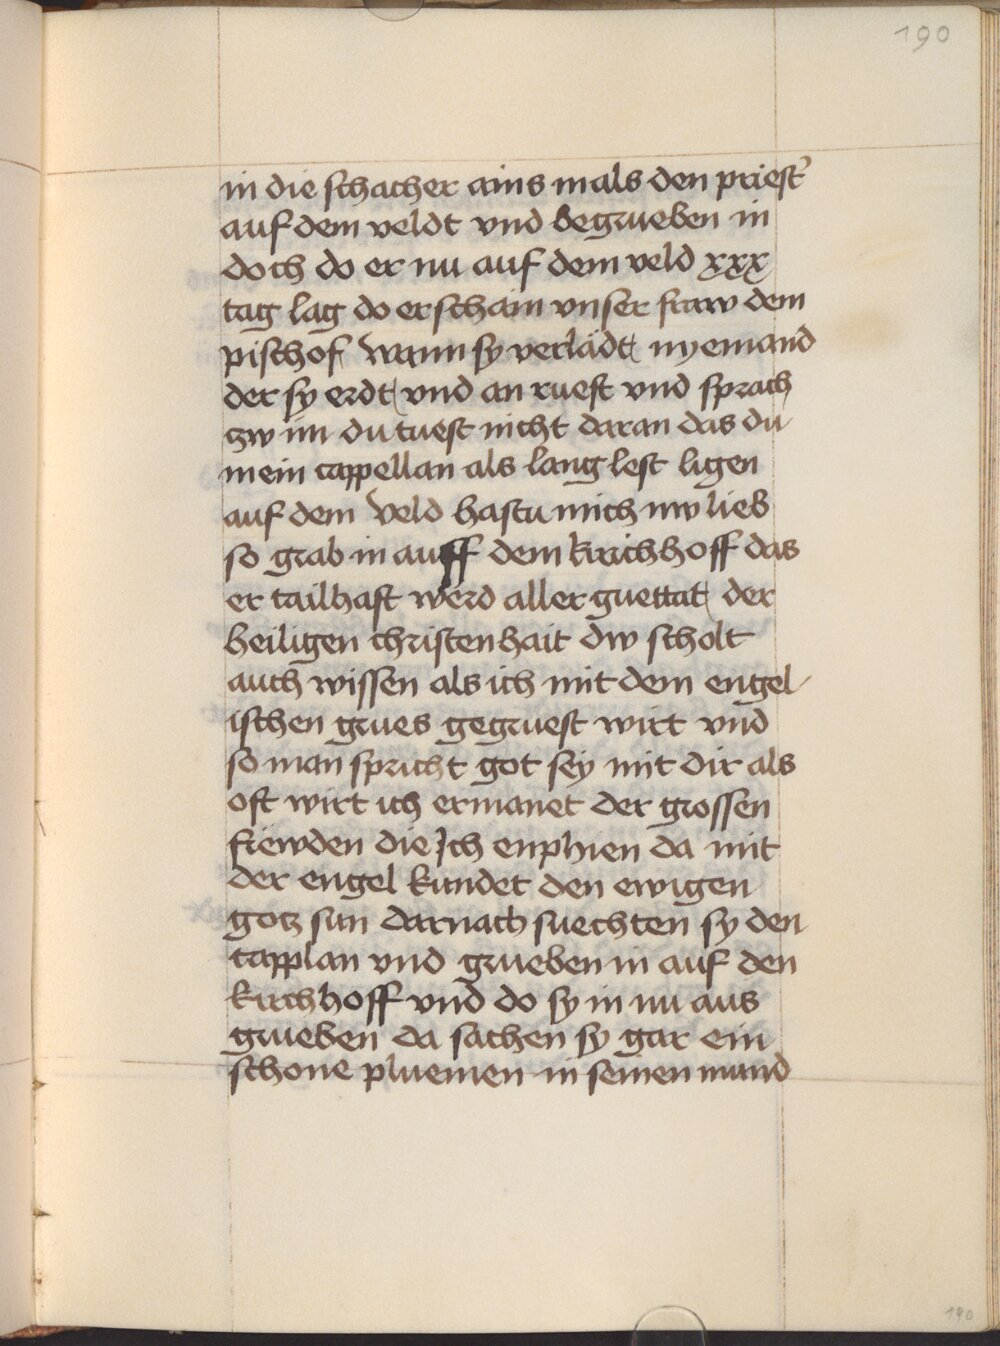 190
in die schacher ains mals den priest'
auf dem veldt vnd begrueben in
doch do er nu auf dem veld xxx
tag lag do erschain vnser fraw dem
pischof wann sy verlädt nyemand
der sy erdt vnd an rueft vnd sprach
zw im du tuest nicht daran das du
mein cappellan als lang lest ligen
auf dem veld hastu mich nw lieb
so grab in auff dem kirchhoff das
er tailhaft werd aller guettat der
heiligen christenhait dw scholt
auch wissen als ich mit dem engel
ischen grues gegruest wirt vnd
so man spricht got sey mit dir als
oft wirt ich ermanet der grossen
frewden die Ich enphien da mit
der engel kundet den ewigen
gotz sun darnach suechten sy den
capplan vnd grueben in auf den
kirchhoff vnd do sy in nu aus
grueben da sachen sy gar ein
schone pluemen in seinen mund
190